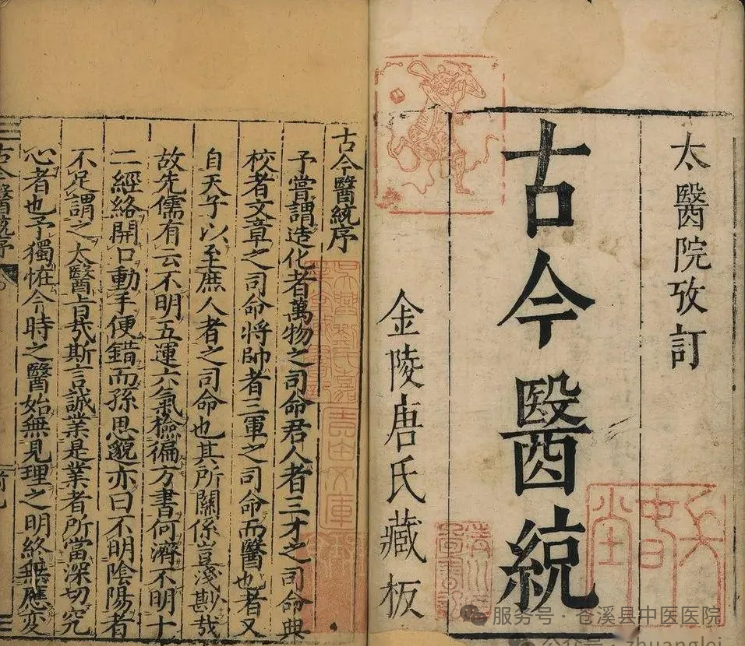 太醫院攷訂
古今醫統
金陵唐氏藏板
古今醫統序
予嘗謂造化者萬物之司命君人者三才之司命典
校者文章之司命將帥者三軍之司命而醫也者又
自天子以至庶人者之司命也其所關係豈淺尠哉
故先儒有云不明五運六氣檢徧方書何濟不明十
二經絡開口動手便錯而孫思邈亦曰不明陰陽者
不足謂之太醫旨哉斯言誠業是業者所當深切究
心者也予獨恠今時之醫始無見理之明終無應變
古今醫統序
服务号 · 苍溪县中医医院
公众号 · zhuanglei